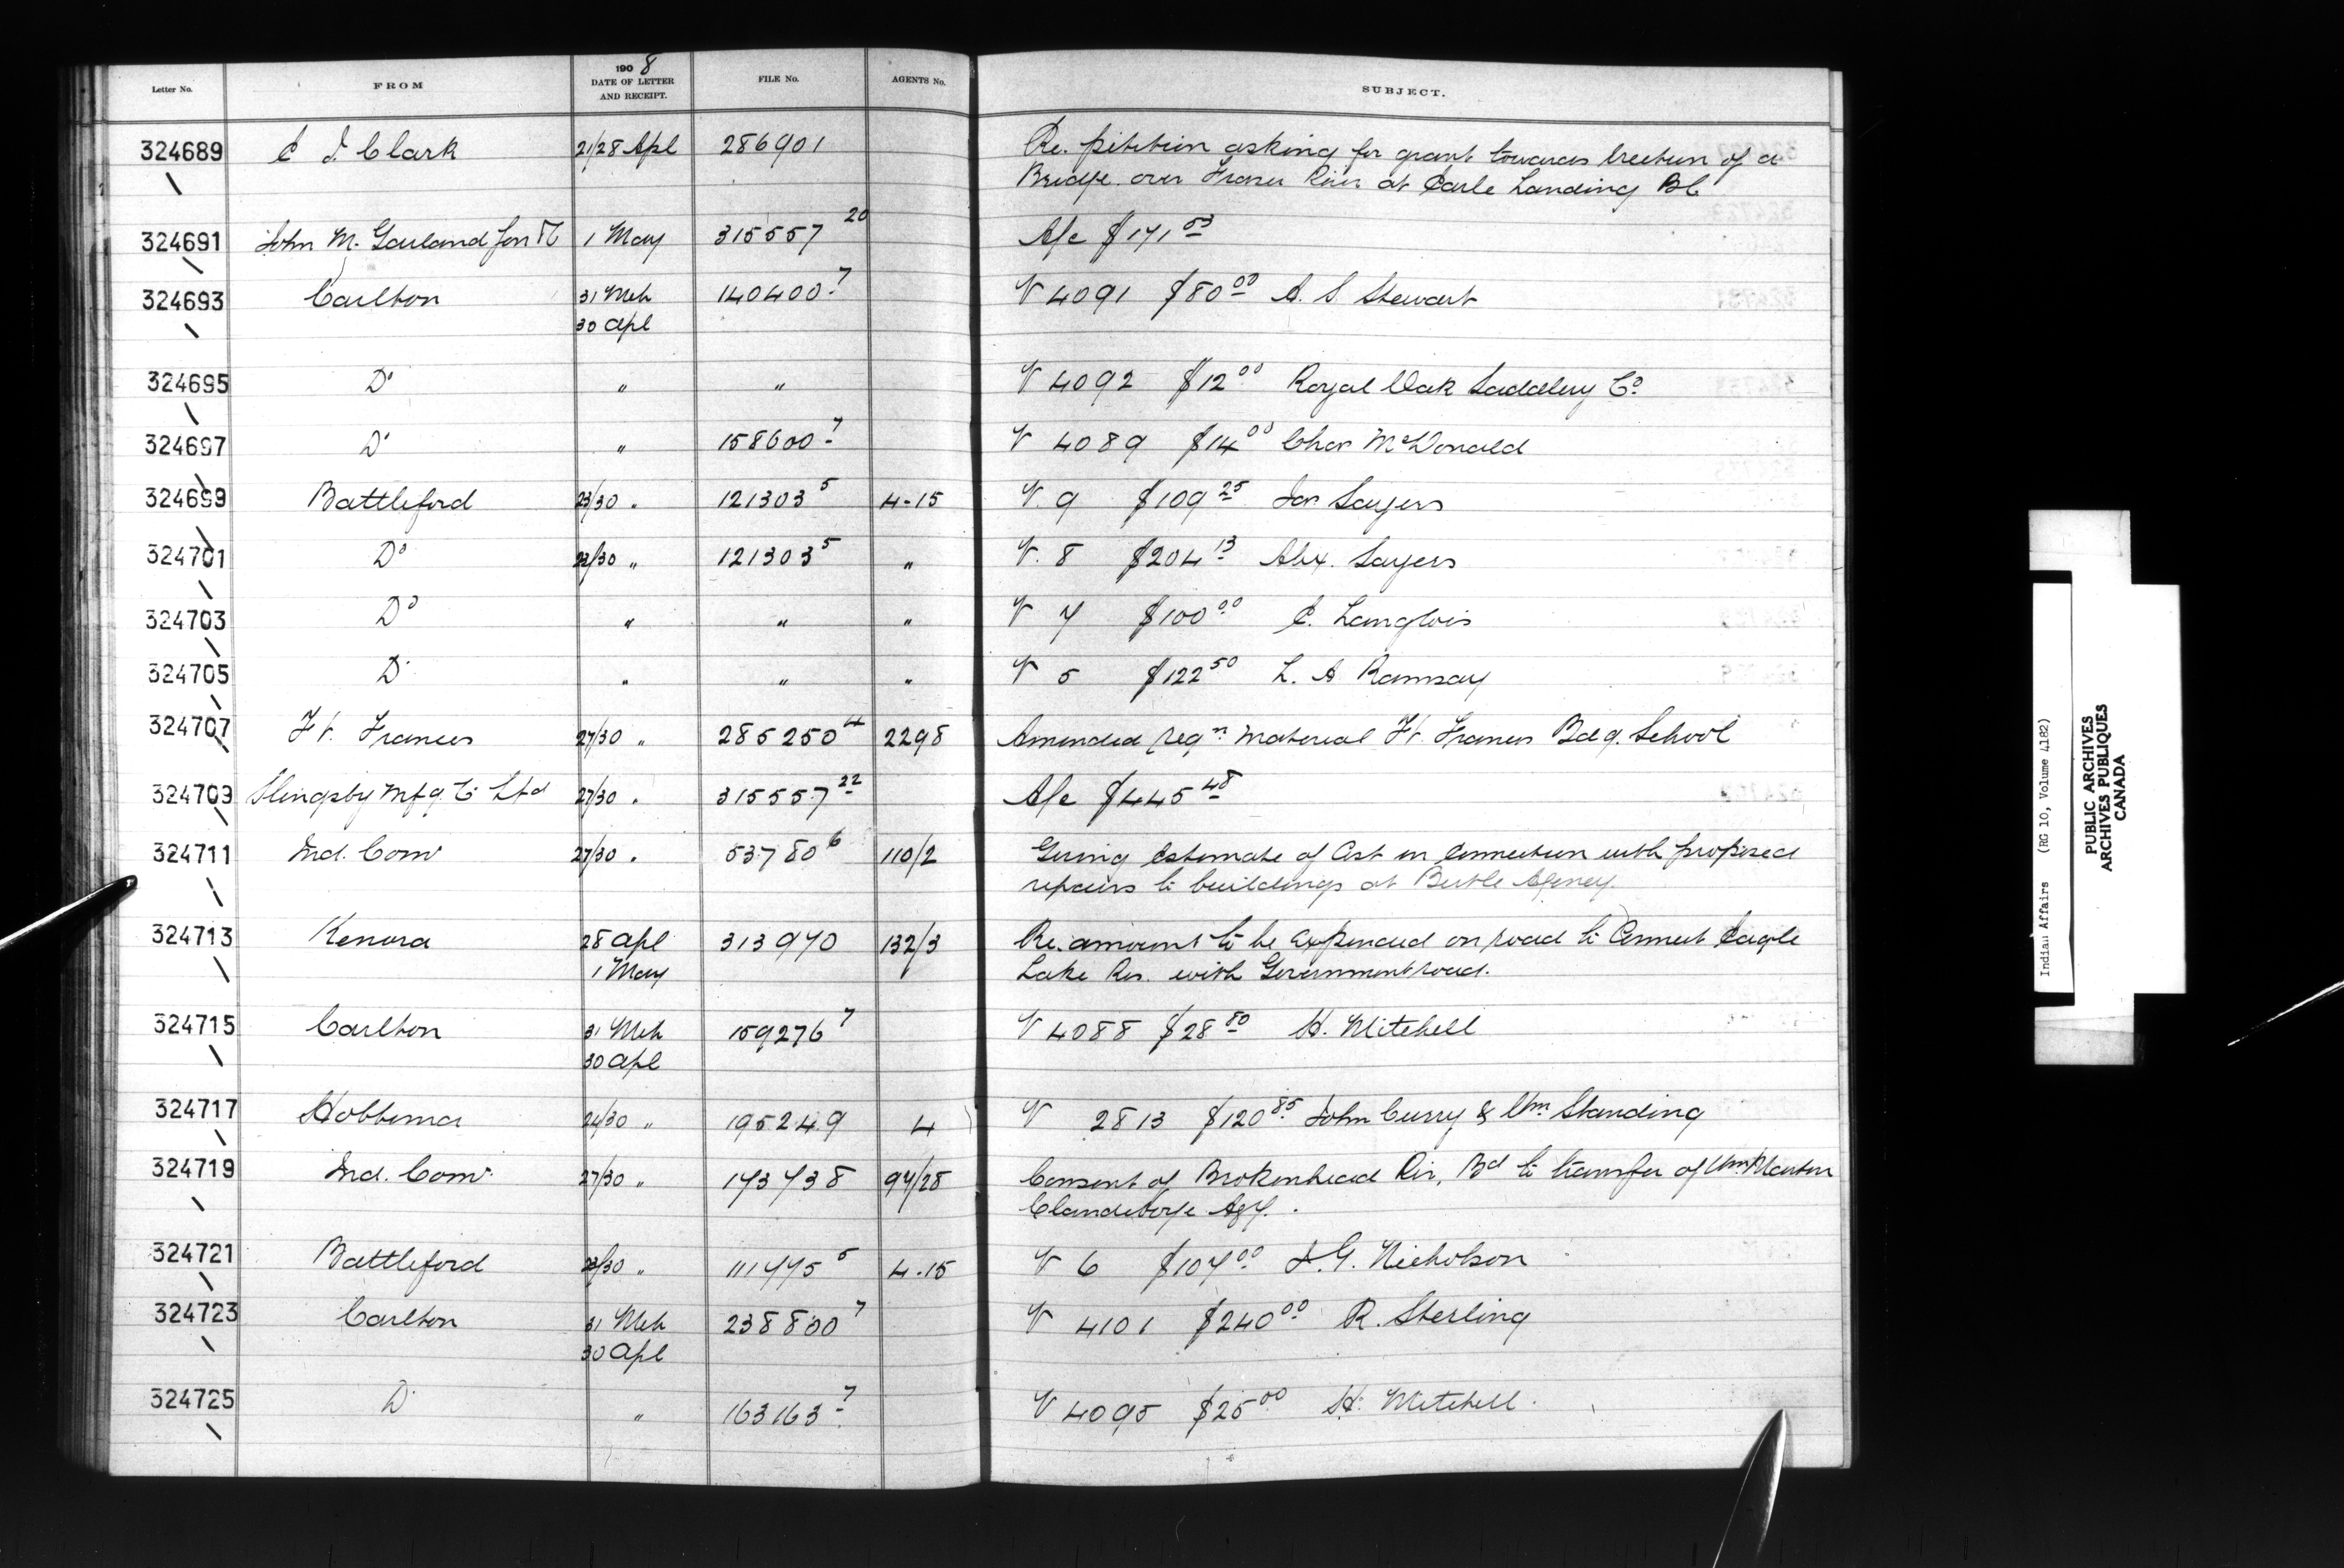 Letter No. FROM 1908 DATE OF LETTER AND RECEIPT. FILE No. AGENTS No. SUBJECT.
324689 C J. Clark 21/28 Apl 286901 Re. petition asking for grant towards erection of a
Bridge over Fraser River at Earle Landing BC
324691 John M. Garland Son & Co 1 May 315557 20 A/c $171 53
324693 Carlton 31 Mch 140400 7 V 4091 $80 00 A. S. Stewart
30 Apl
324695 Do " " V 4092 $12 00 Royal Oak Saddlery Co
324697 Do " 158600 7 V 4089 $14 00 Chas McDonald
324699 Battleford 23/30 " 121303 5 4-15 V. 9 $109 25 Jas Sayers
324701 Do 23/30 " 121303 5 " V. 8 $204 13 Alex. Sayers
324703 Do " " " V 7 $100 00 C. Langlois
324705 Do " " " V 5 $122 50 L. A Ramsay
324707 Ft. Frances 27/30 " 285250 4 2298 Amended reqn material Ft. Frances Bdg. School
324709 Slingsby Mfg Co Ltd 27/30 " 315557 22 A/c $445 48
324711 Ind. Comr 27/30 " 53780 6 110/2 Giving estimate of Cost in connection with proposed
repairs to buildings at Birtle Agency.
324713 Kenora 28 Apl 313970 132/3 Re. amount to be expended on road to Connect Eagle
1 May Lake Res. with Government road.
324715 Carlton 31 Mch 159276 7 V 4088 $28 80 H. Mitchell
30 Apl
324717 Hobbema 24/30 " 195249 4 V 2813 $120 85 John Curry & Wm Standing
324719 Ind. Comr 27/30 " 173738 97/28 Consent of Brokenhead Riv. Bd to transfer of Wm
Clandeboye Agy.
324721 Battleford 23/30 " 111775 5 4-15 V 6 $107 00 J. G. Nicholson
324723 Carlton 31 Mch 238800 7 V 4101 $240 00 R. Sterling
30 Apl
324725 Do " 163163 7 V 4095 $25 00 H. Mitchell
Indian Affairs (RG 10, Volume 4182)
PUBLIC ARCHIVES
ARCHIVES PUBLIQUES
CANADA